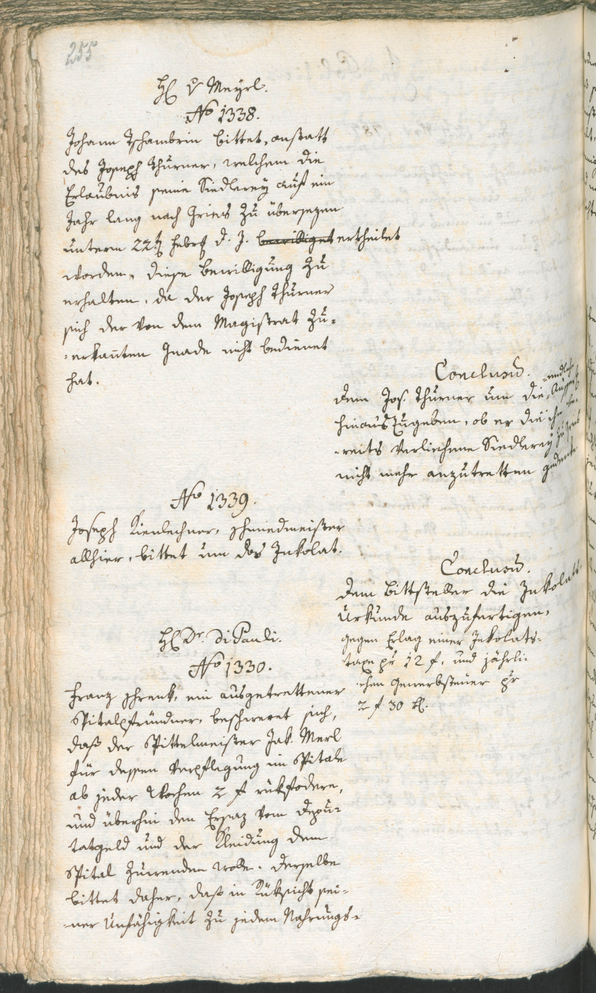 255
H v Mayrl.
No 1338.
Johann Tschambrin bittet, anstatt
des Joseph Thurner, welchem die
Erlaubnis seine Siedlerey auf ein
Jahr lang nach Gries zu übersezen
unterm 22t Febr d. J. bewilliget ertheilet
worden, diese Bewilligung zu
erhalten, da der Joseph Thurner
sich der von dem Magistrat zu-
erkanten Gnade nicht bedienet
hat.
Conclusum.
dem Jos. Thurner um die
hinauszugeben, ob er die ihm be-
reits verliehene Siedlerey
nicht mehr anzutretten gedenke
No 1339.
Joseph Kienlechner, Schmiedmeister
allhier, bittet um das Inkolat.
Conclusum.
dem Bittsteller die Inkolats
Urkunde auszufertigen,
gegen Erlag einer Inkolats-
taxe pr 12 f, und jährli-
chen Gewerbsteuer pr
2 f 30 kr.
H Dr. Di Pauli.
No 1330.
Franz Schrenk, ein ausgetrettener
Spitalpfründner, beschweret sich,
daß der Spittelmeister Jak. Merl
für dessen Verpflegung im Spitale
ab jeder Wochen 2 f rükfodere,
und überhin den Ersaz vom Depu-
tatgeld und der Kleidung dem
Spital zuwenden wolle. Derselbe
bittet daher, daß in Rüksicht sei-
ner Unfähigkeit zu jedem Nahrungs-